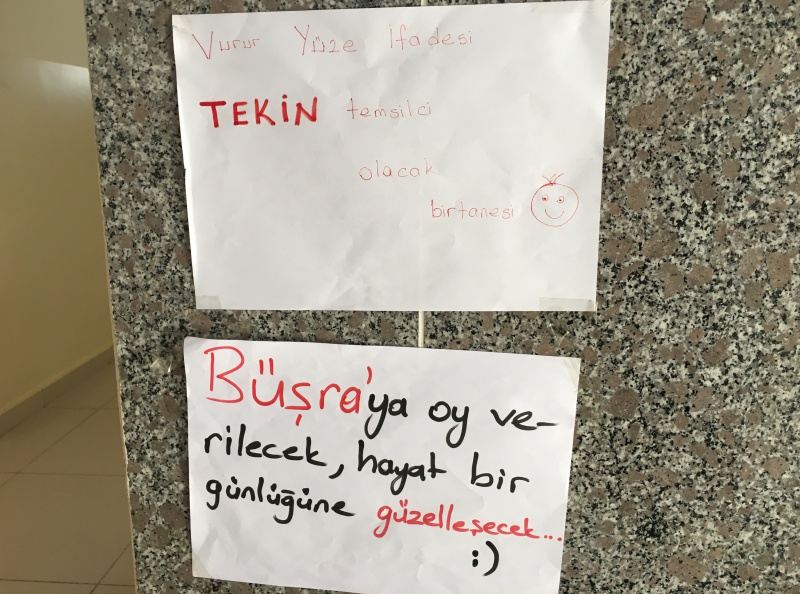 Vurur Yüze İfadesi
TEKİN temsilci
olacak
birtanesi
Büşra'ya oy ve-
rilecek, hayat bir
günlüğüne güzelleşecek...
:)